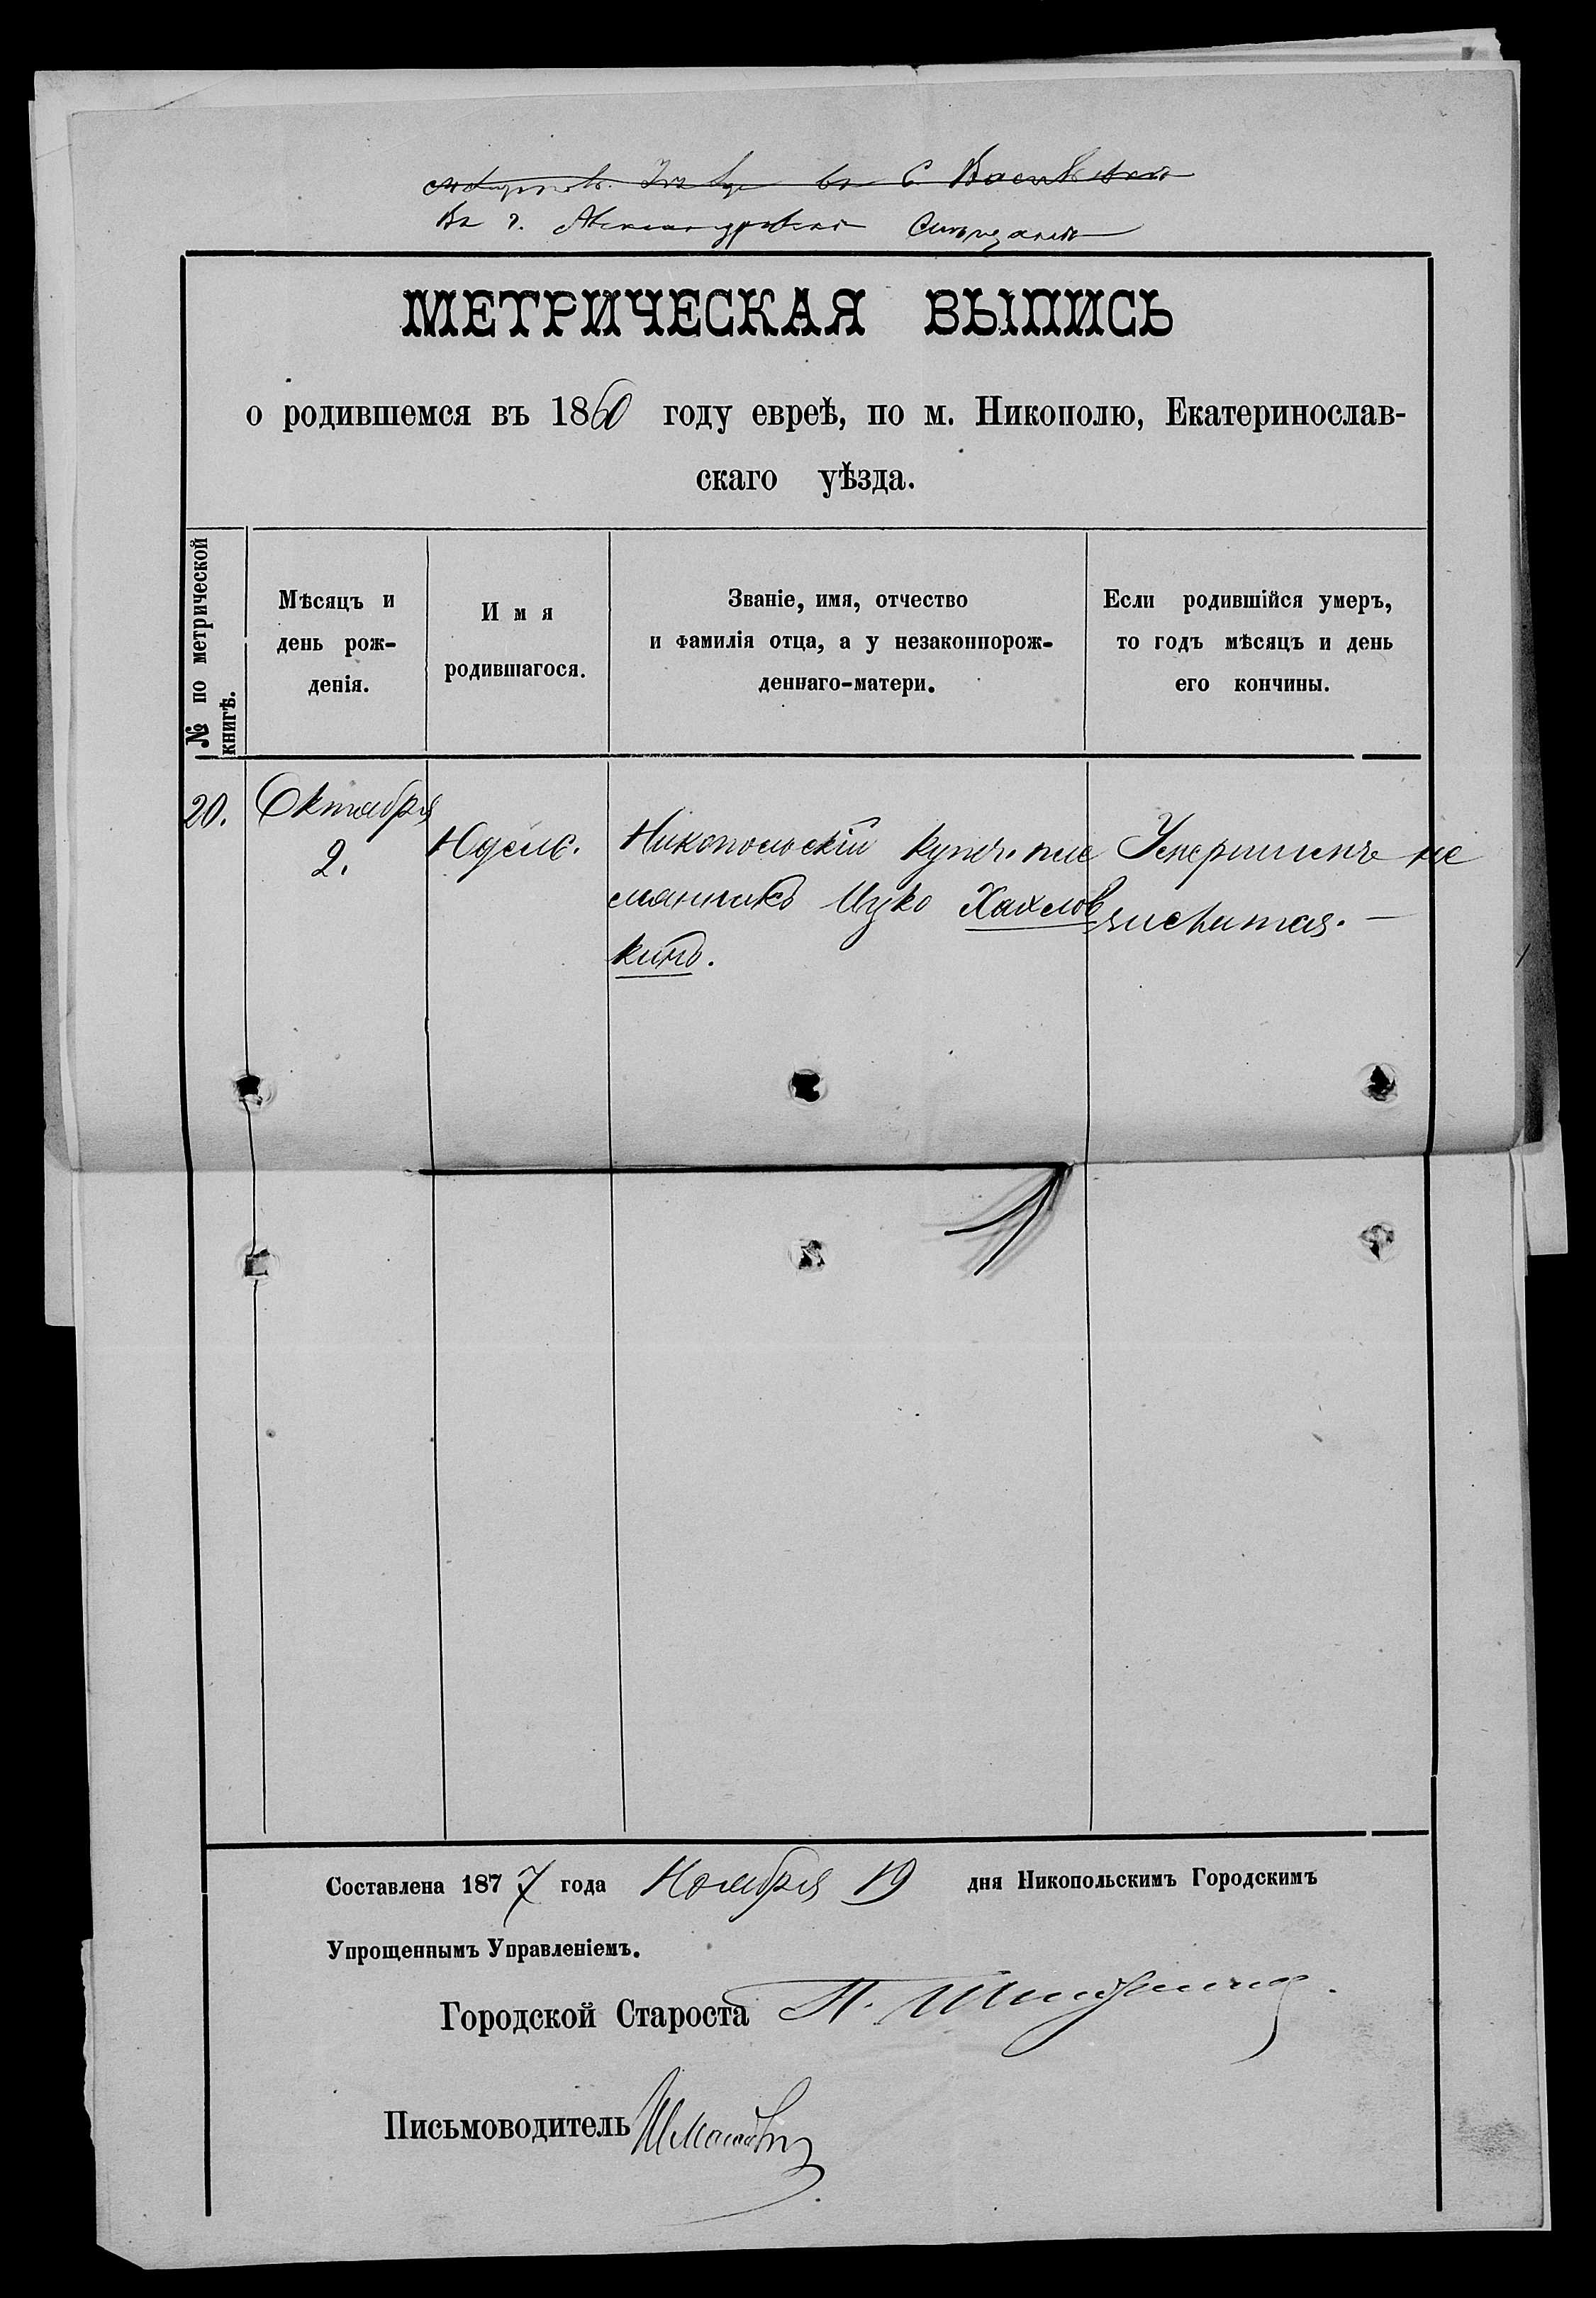 Въ г. Александровскѣ
МЕТРИЧЕСКАЯ ВЫПИСЬ
о родившемся въ 1860 году евреѣ, по м. Никополю, Екатеринослав-
скаго уѣзда.
№ по метрической
книгѣ.
Мѣсяцъ и
день рож-
денія.
Имя
родившагося.
Званіе, имя, отчество
и фамилія отца, а у незаконнорож-
деннаго-матери.
Если родившійся умеръ,
то годъ мѣсяцъ и день
его кончины.
20.
Октября
2.
Юдель.
Никопольскій купеч. пле
мянникъ Ицко Хахлов
кинъ.
Умершимъ не
числится. —
Составлена 1877 года Ноября 19 дня Никопольскимъ Городскимъ
Упрощеннымъ Управленіемъ.
Городской Староста П.
Письмоводитель